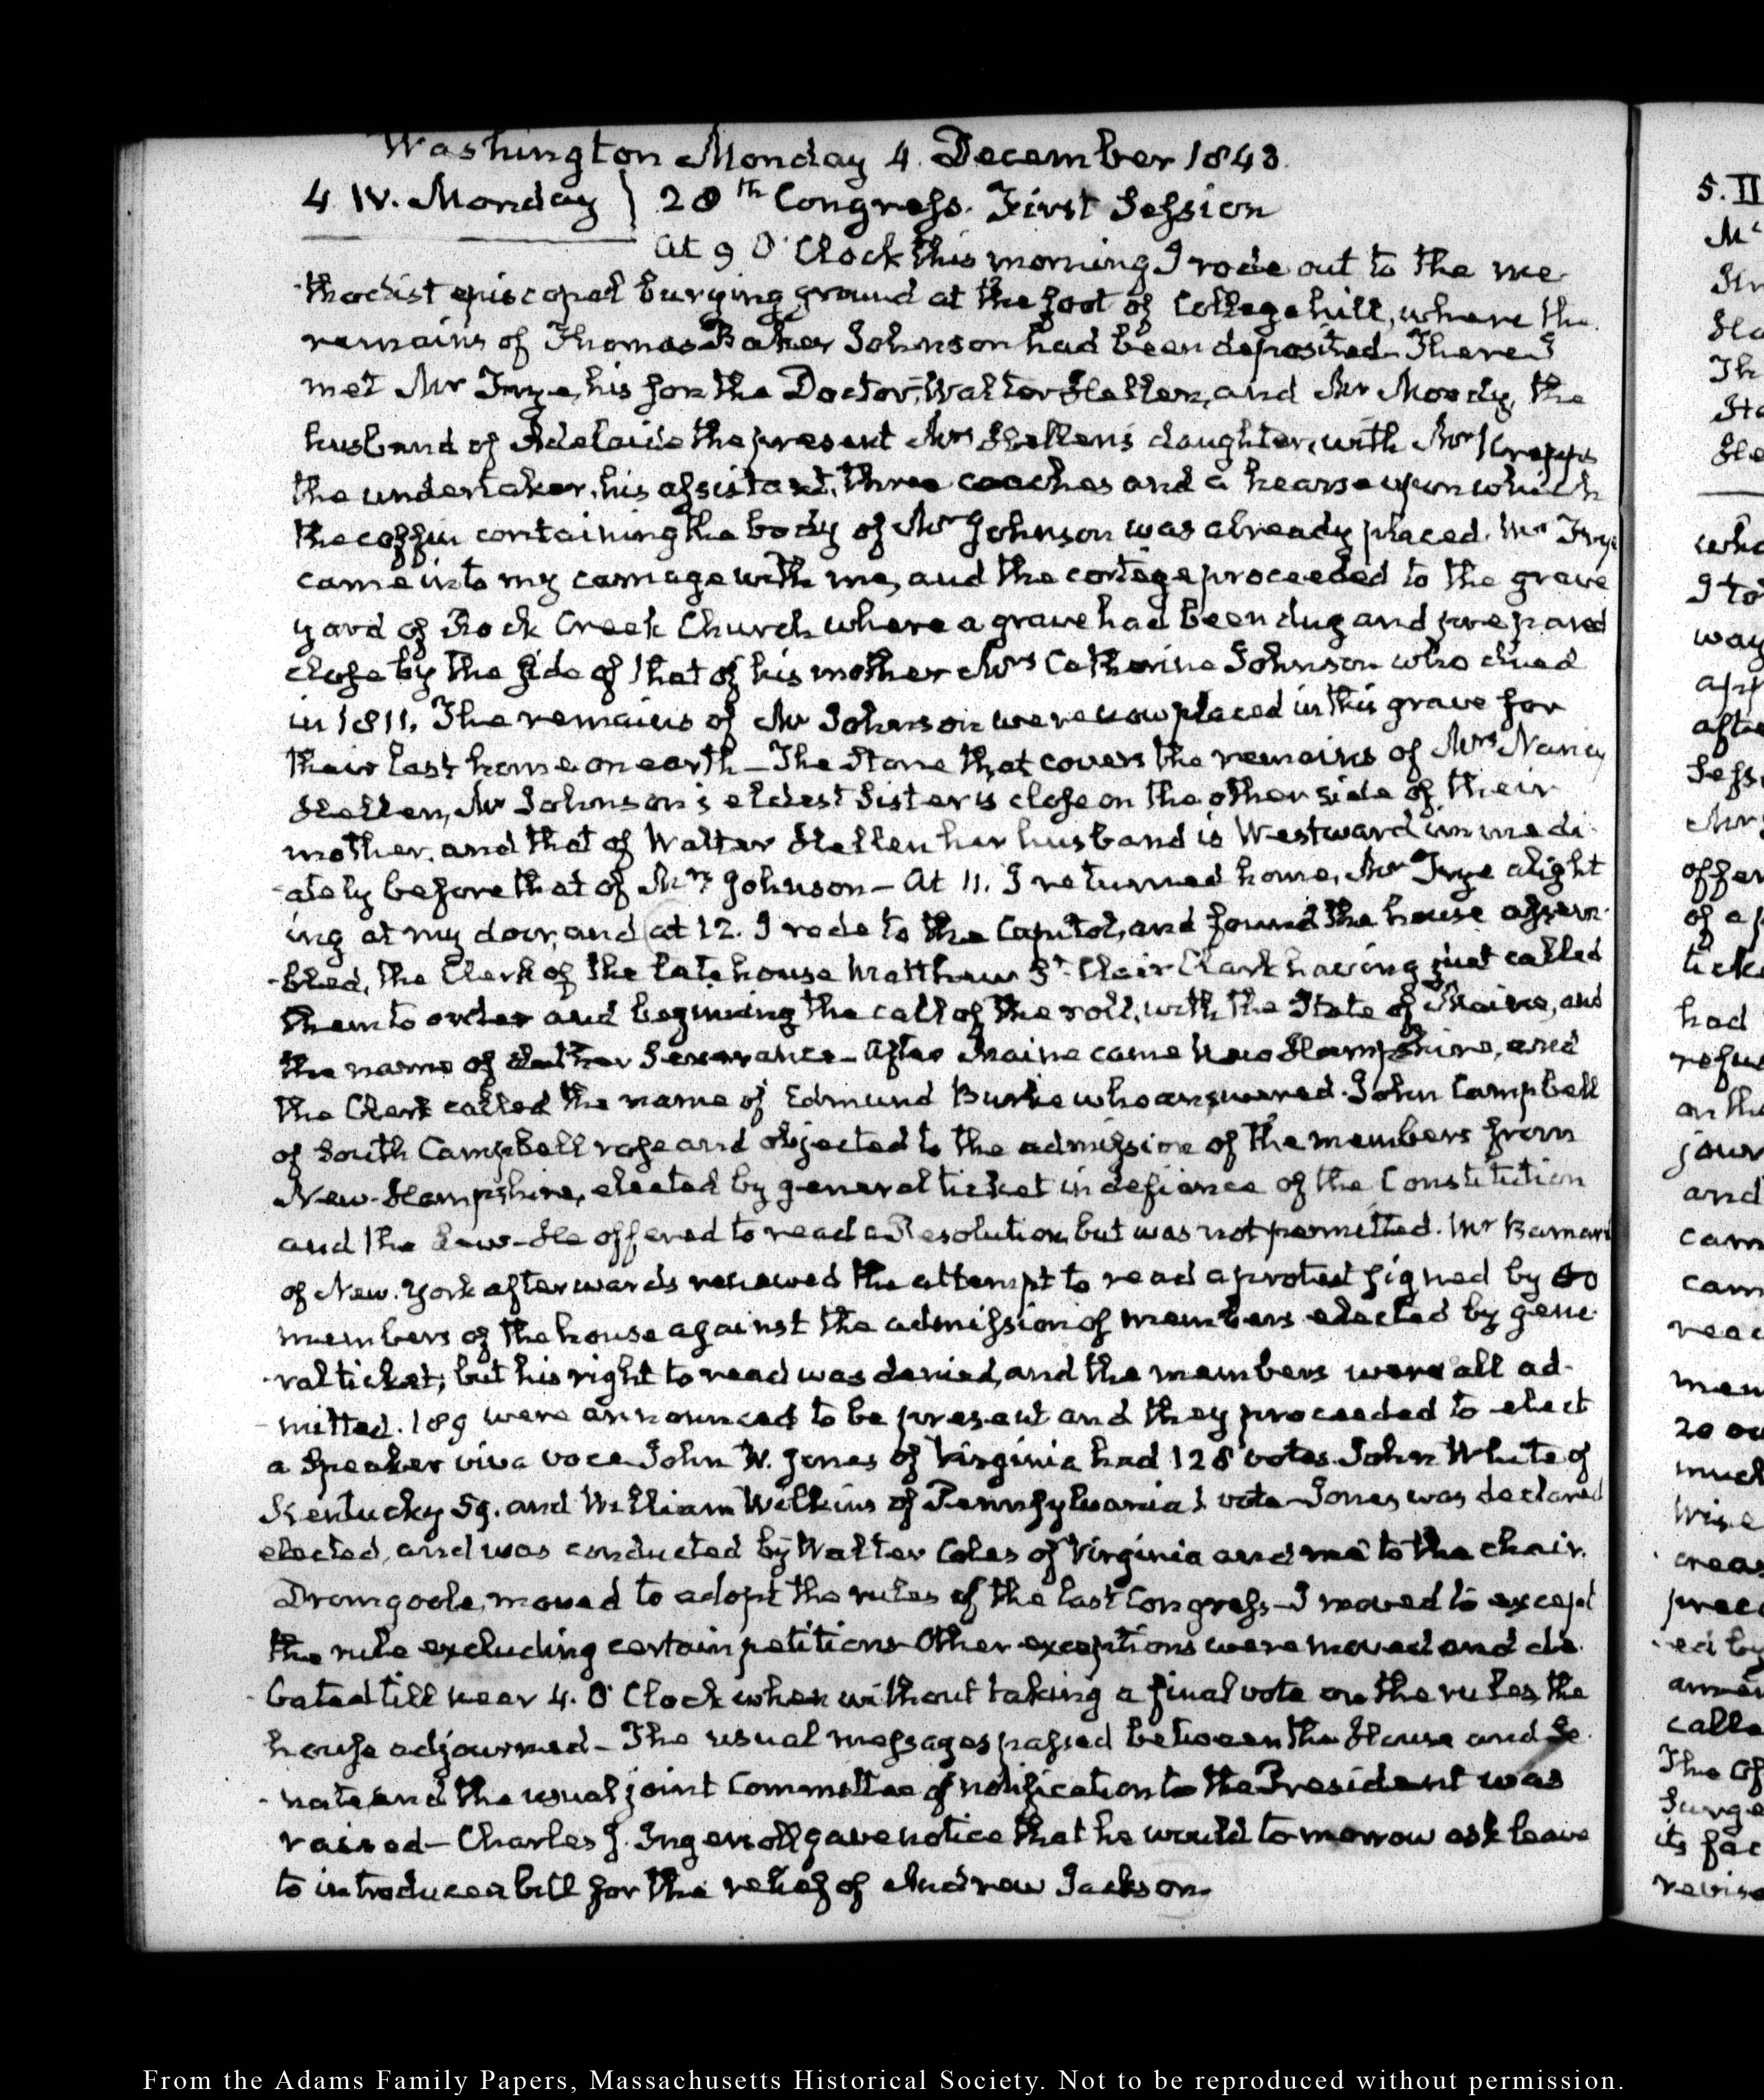 Washington Monday 4. December 1843.
4 IV. Monday } 28th Congress. First Session
At 9 O'Clock this morning I rode out to the me-
thodist episcopal burying ground at the foot of College hill, where the
remains of Thomas Baker Johnson had been deposited. There I
met Mr Frye, his son the Doctor, Walter Hellen, and Mr Moody, the
husband of Adelaide the present Mrs Hellen's daughter, with Mr
the undertaker, his assistant, three coaches and a hearse upon which
the coffin containing the body of Mr Johnson was already placed. Mr Frye
came into my carriage with me, and the cortege proceeded to the grave
yard of Rock Creek Church where a grave had been dug and prepared
close by the side of that of his mother Mrs Catherine Johnson who died
in 1811. The remains of Mr Johnson were now placed in this grave for
their last home on earth— The Stone that covers the remains of Mrs Nancy
Hellen, Mr Johnson's eldest Sister is close on the other side of their
mother, and that of Walter Hellen her husband is Westward immedi-
-ately before that of Mrs Johnson— At 11. I returned home, Mr Frye alight
ing at my door, and at 12. I rode to the Capitol, and found the house assem-
-bled, the Clerk of the late house Matthew St. Clair Clark having just called
them to order and beginning the call of the roll, with the State of Maine, and
the name of Luther Severance— After Maine came New Hampshire, and
the Clerk called the name of Edmund Burke who answered. John Campbell
of South Campbell rose and objected to the admission of the members from
New-Hampshire, elected by general ticket in defiance of the Constitution
and the Law— He offered to read a Resolution, but was not permitted. Mr Barnard
of New-York afterwards renewed the attempt to read a protest signed by 50
members of the house against the admission of members elected by gene-
-ral ticket; but his right to read was denied, and the members were all ad-
-mitted. 189 were announced to be present and they proceeded to elect
a Speaker viva voce. John W. Jones of Virginia had 128 votes. John White of
Kentucky 59. and William Wilkins of Pennsylvania 1 vote— Jones was declared
elected, and was conducted by Walter Coles of Virginia and me to the chair.
Dromgoole, moved to adopt the rules of the last Congress— I moved to except
the rule excluding certain petitions— Other exceptions were moved and de-
-bated till near 4. O'Clock when without taking a final vote on the rules the
house adjourned— The usual messages passed between the House and Se-
-nate, and the usual joint Committee of notification to the President was
raised— Charles J. Ingersoll gave notice that he would to-morrow ask leave
to introduce a bill for the relief of Andrew Jackson.
5. II
whic
9 to
way
afte
Sess
offer
of a p
ticke
had
refus
on the
jour
and
cam
cam
mem
20 ou
much
Wise
ed by
calle
its fac
revise
From the Adams Family Papers, Massachusetts Historical Society. Not to be reproduced without permission.